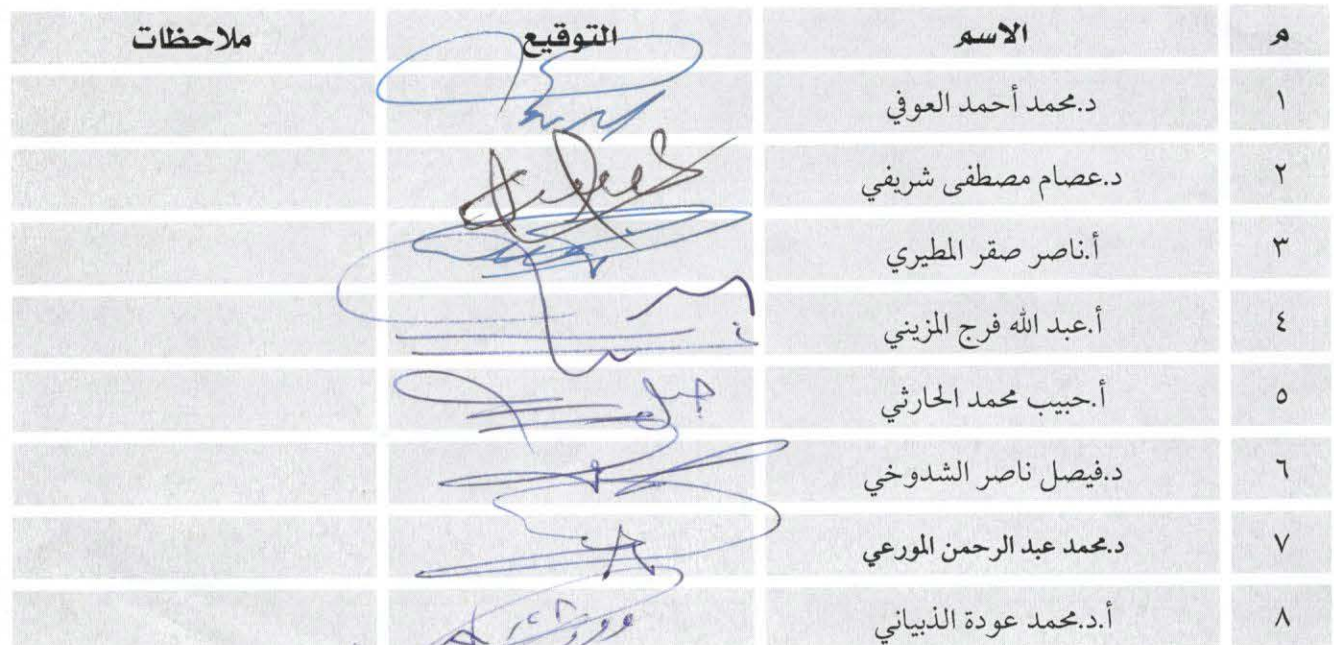 م الاسم التوقيع ملاحظات
١ د.محمد أحمد العوفي
٢ د.عصام مصطفى شريفي
٣ أ.ناصر صقر المطيري
٤ أ.عبد الله فرج المزيني
٥ أ.حبيب محمد الحارثي
٦ د.فيصل ناصر الشدوخي
٧ د.محمد عبد الرحمن المورعي
٨ أ.د.محمد عودة الذبياني